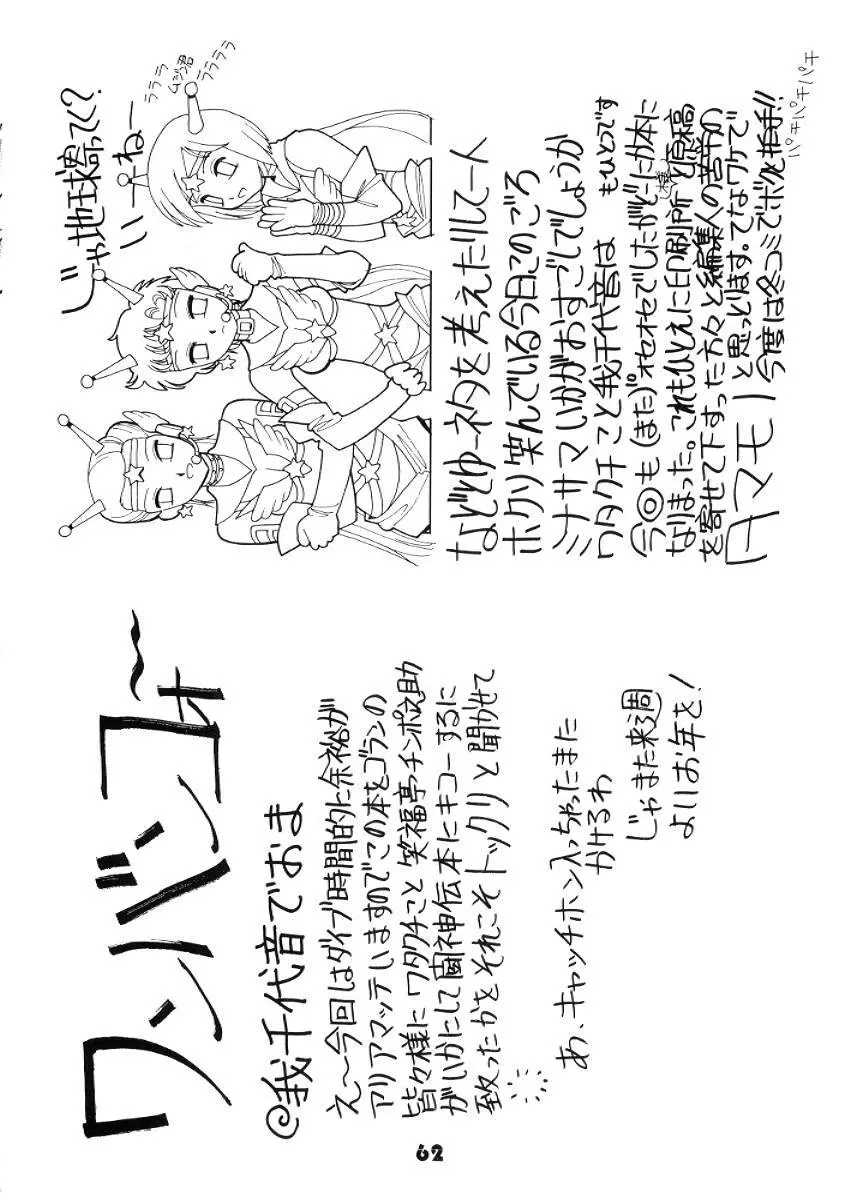 ワンバンコォ〜
@我千代音でおま
え〜今回はダイブ時間的に余裕が
アリアマッテいますのでこの本をゴランの
皆々様にワタクチこと笑福亭チンポ之助
がいかにして闘神伝本にキコーするに
致ったかをそれこそトックリと聞かせて
あ、キャッチホン入っちゃったまた
かけるわ
じゃまた来週
よいお年を!
じゃ地球寄ってく?
いーねー
ラララ
ムジン君
ララララ
などとゆーネタを考えたりして一人
ホクソ笑んでいる今日このごろ
ミナサマいかがおすごしでしょうか
ワタクチこと我千代音は もひとつです
今回も(また)オセオセでしたがどーにか本に
なりまった。これもひとえに印刷所と原稿
を寄せて下すった方々と編集人の苦労の
タマモノと思っとります。てなワケで
今度は冬コミでボクと握手!!
パチパチパチパチ
62